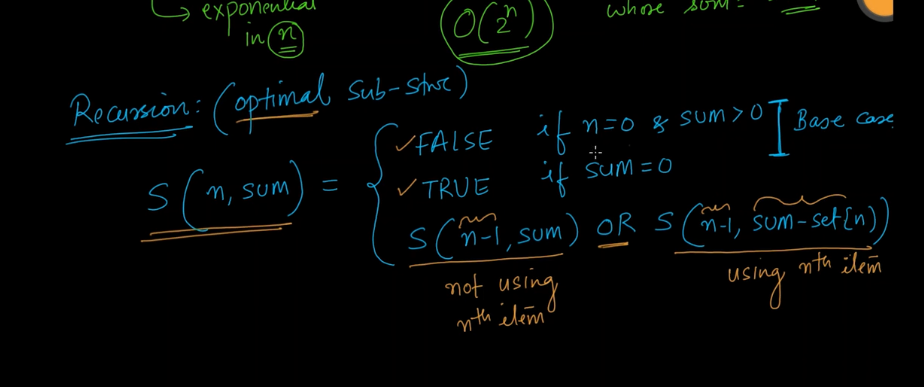 ↳ exponential
in n
O(2^n)
whose sum =
Recursion: (optimal sub-struc)
S(n, sum) = {
✓ FALSE if n=0 & sum>0
✓ TRUE if sum=0
] Base case
S(n-1, sum) OR S(n-1, sum-set[n])
not using
nth item
using nth item